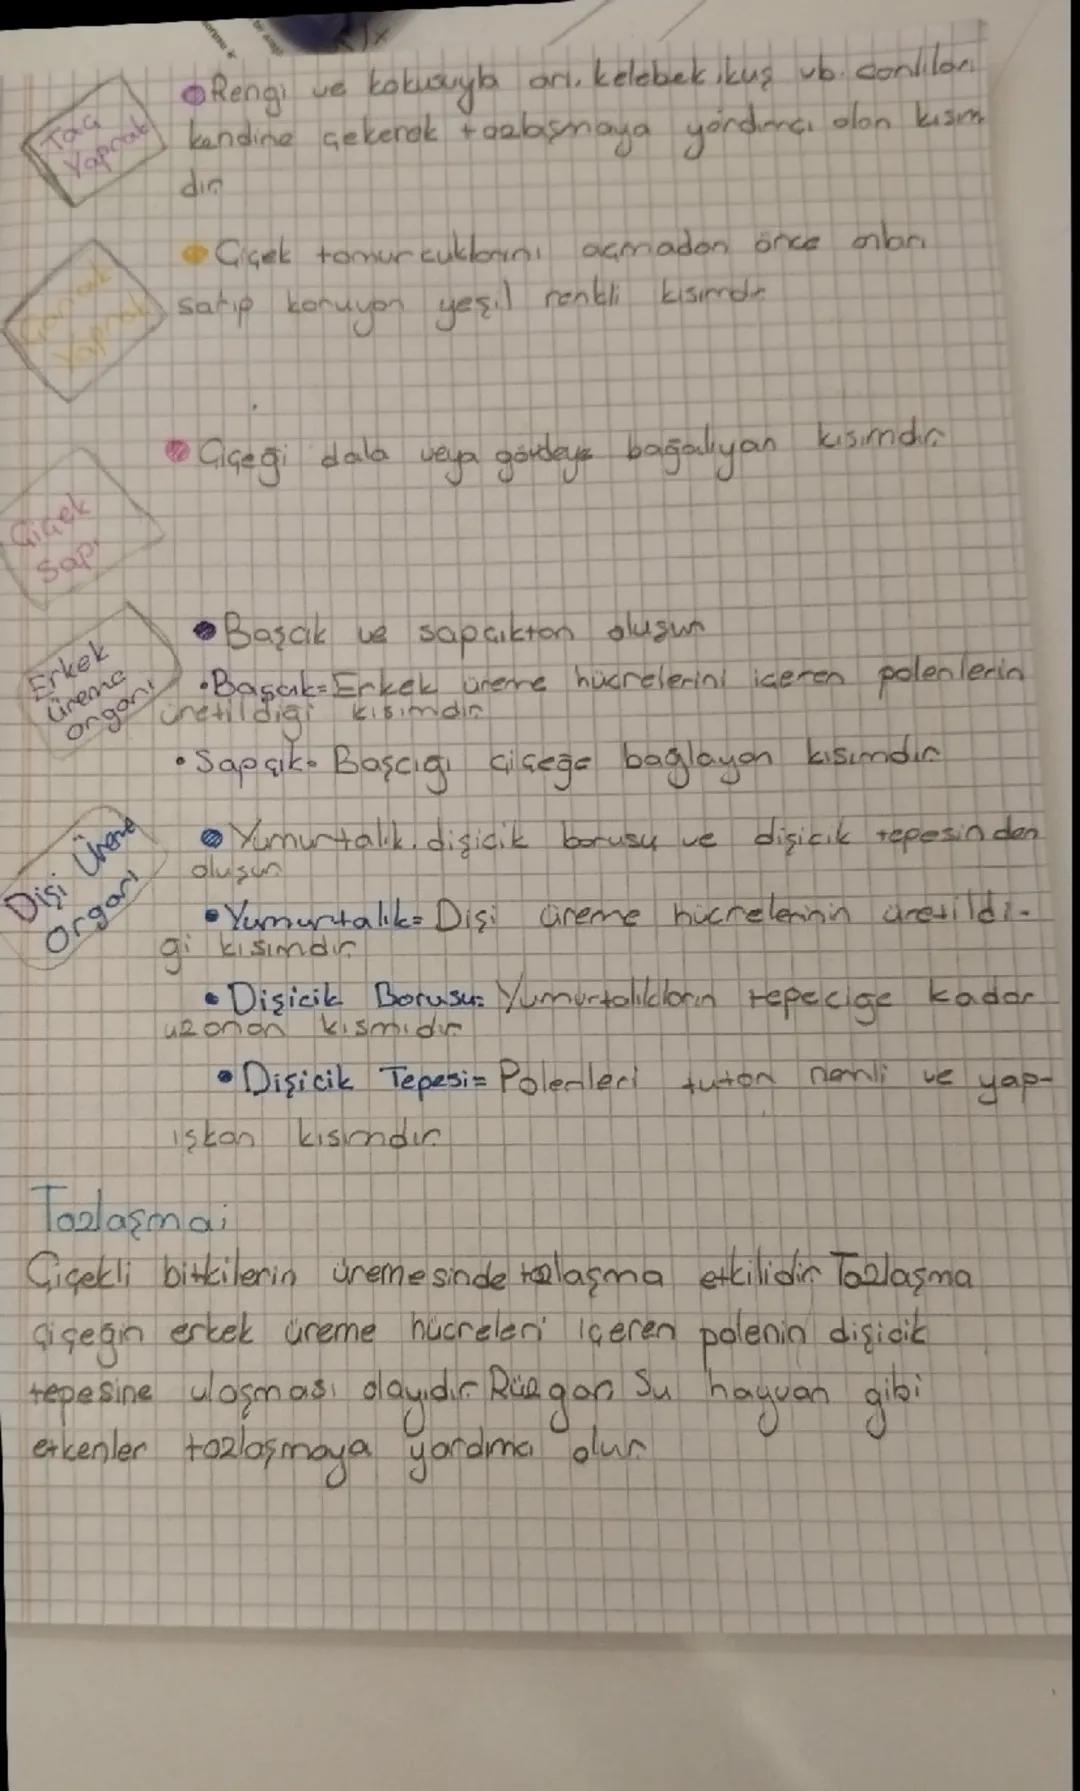 Taç
Yaprak
Rengi ve kokusuyla arı, kelebek, kuş vb. canlıları
kendine çekerek tozlaşmaya yardımcı olan kısım
dır
Çanak
Yaprak
Çiçek tomurcuklarını açmadan önce onları
sarıp koruyan yeşil renkli kısımdır
Çiçek
Sapı
Çiçeği dala veya gövdeye bağalıyan kısımdır
Erkek
üreme
organı
Başcık ve sapçıktan oluşur
•Başcık=Erkek üreme hücrelerini içeren polenlerin
üretildiği kısımdır
•Sapçık= Başcığı çiçeğe bağlayan kısımdır
Dişi Üreme
organı
Yumurtalık, dişicik borusu ve dişicik tepesinden
oluşur
•Yumurtalık= Dişi üreme hücrelerinin üretildi-
ği kısımdır
•Dişicik Borusu= Yumurtalıkların tepeciğe kadar
uzanan kısmıdır
•Dişicik Tepesi= Polenleri tutan nemli ve yap-
ışkan kısımdır
Tozlaşma;
Çiçekli bitkilerin üremesinde tozlaşma etkilidir Tozlaşma
çiçeğin erkek üreme hücreleri içeren polenin dişicik
tepesine ulaşması olayıdır Rüzgar Su hayvan gibi
etkenler tozlaşmaya yardımcı olur